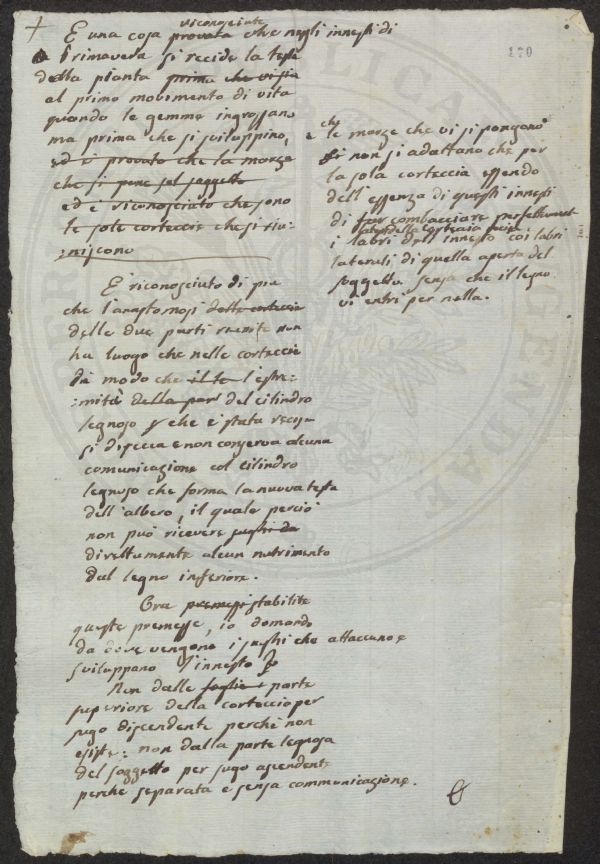 +
riconosciuta
E una cosa provata che negli innesti di
Primavera si recide la testa
della pianta prima che vi sia
al primo movimento di vita
quando le gemme ingrossano
ma prima che si sviluppino,
ed è provato che la marza
che si pone sul soggetto
ed è riconosciuto che sono
le sole corteccie che si riu-
:niscono
E riconosciuto di più
che l'anastomosi delle corteccie
delle due parti riunite non
ha luogo che nelle corteccie
di modo che il le l'estre:
:mità della par del cilindro
legnoso che è stata recisa
si disecca e non conserva alcuna
comunicazione col cilindro
legnoso che forma la nuova testa
dell'albero, il quale perciò
non può ricevere sughi da
direttamente alcun nutrimento
dal legno inferiore.
Ora premessi stabilite
queste premesse, io domando
da dove vengono i sughi che attaccano e
sviluppano l'innesto
Non dalle foglie parte
superiore della corteccia per
sugo discendente perchè non
esiste: non dalla parte legnosa
del soggetto per sugo ascendente
perche separata e senza comunicazione.
170
e che le marze che vi si pongono
si non si adattano che per
la sola corteccia essendo
dell'essenza di questi innesti
di far combacciare perfettamente
della corteccia
i labri dell'innesto coi labri
laterali di quella aperta del
soggetto senza che il legno
vi entri per nulla.